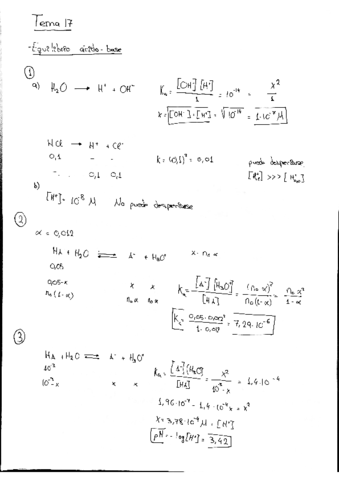 Tema 17
- Equilibrio ácido-base
①
a) H₂O → H⁺ + OH⁻ Kₐ = [OH⁻][H⁺] / 1 = 10⁻¹⁴ = x² / 1
x = [OH⁻] = [H⁺] = √10⁻¹⁴ = 1·10⁻⁷ M
HCl → H⁺ + Cl⁻
0,1 - - K = (0,1)² = 0,01 puede despreciarse
- 0,1 0,1
b)
[H⁺] = 10⁻⁸ M No puede despreciarse
②
α = 0,012
HA + H₂O ⇌ A⁻ + H₃O⁺ x = n₀ α
0,05
0,05-x x x Kₐ = [A⁻][H₃O⁺] / [HA] = (n₀ α)² / n₀(1-α) = n₀ α² / 1-α
n₀(1-α) n₀α n₀α
③
HA + H₂O ⇌ A⁻ + H₃O⁺ Kₐ = [A⁻][H₃O⁺] / [HA] = x² / 10⁻³-x = 1,4·10⁻⁴
x x
x = 3,78·10⁻⁴ M = [H⁺]
pH = -log[H⁺] = 3,42